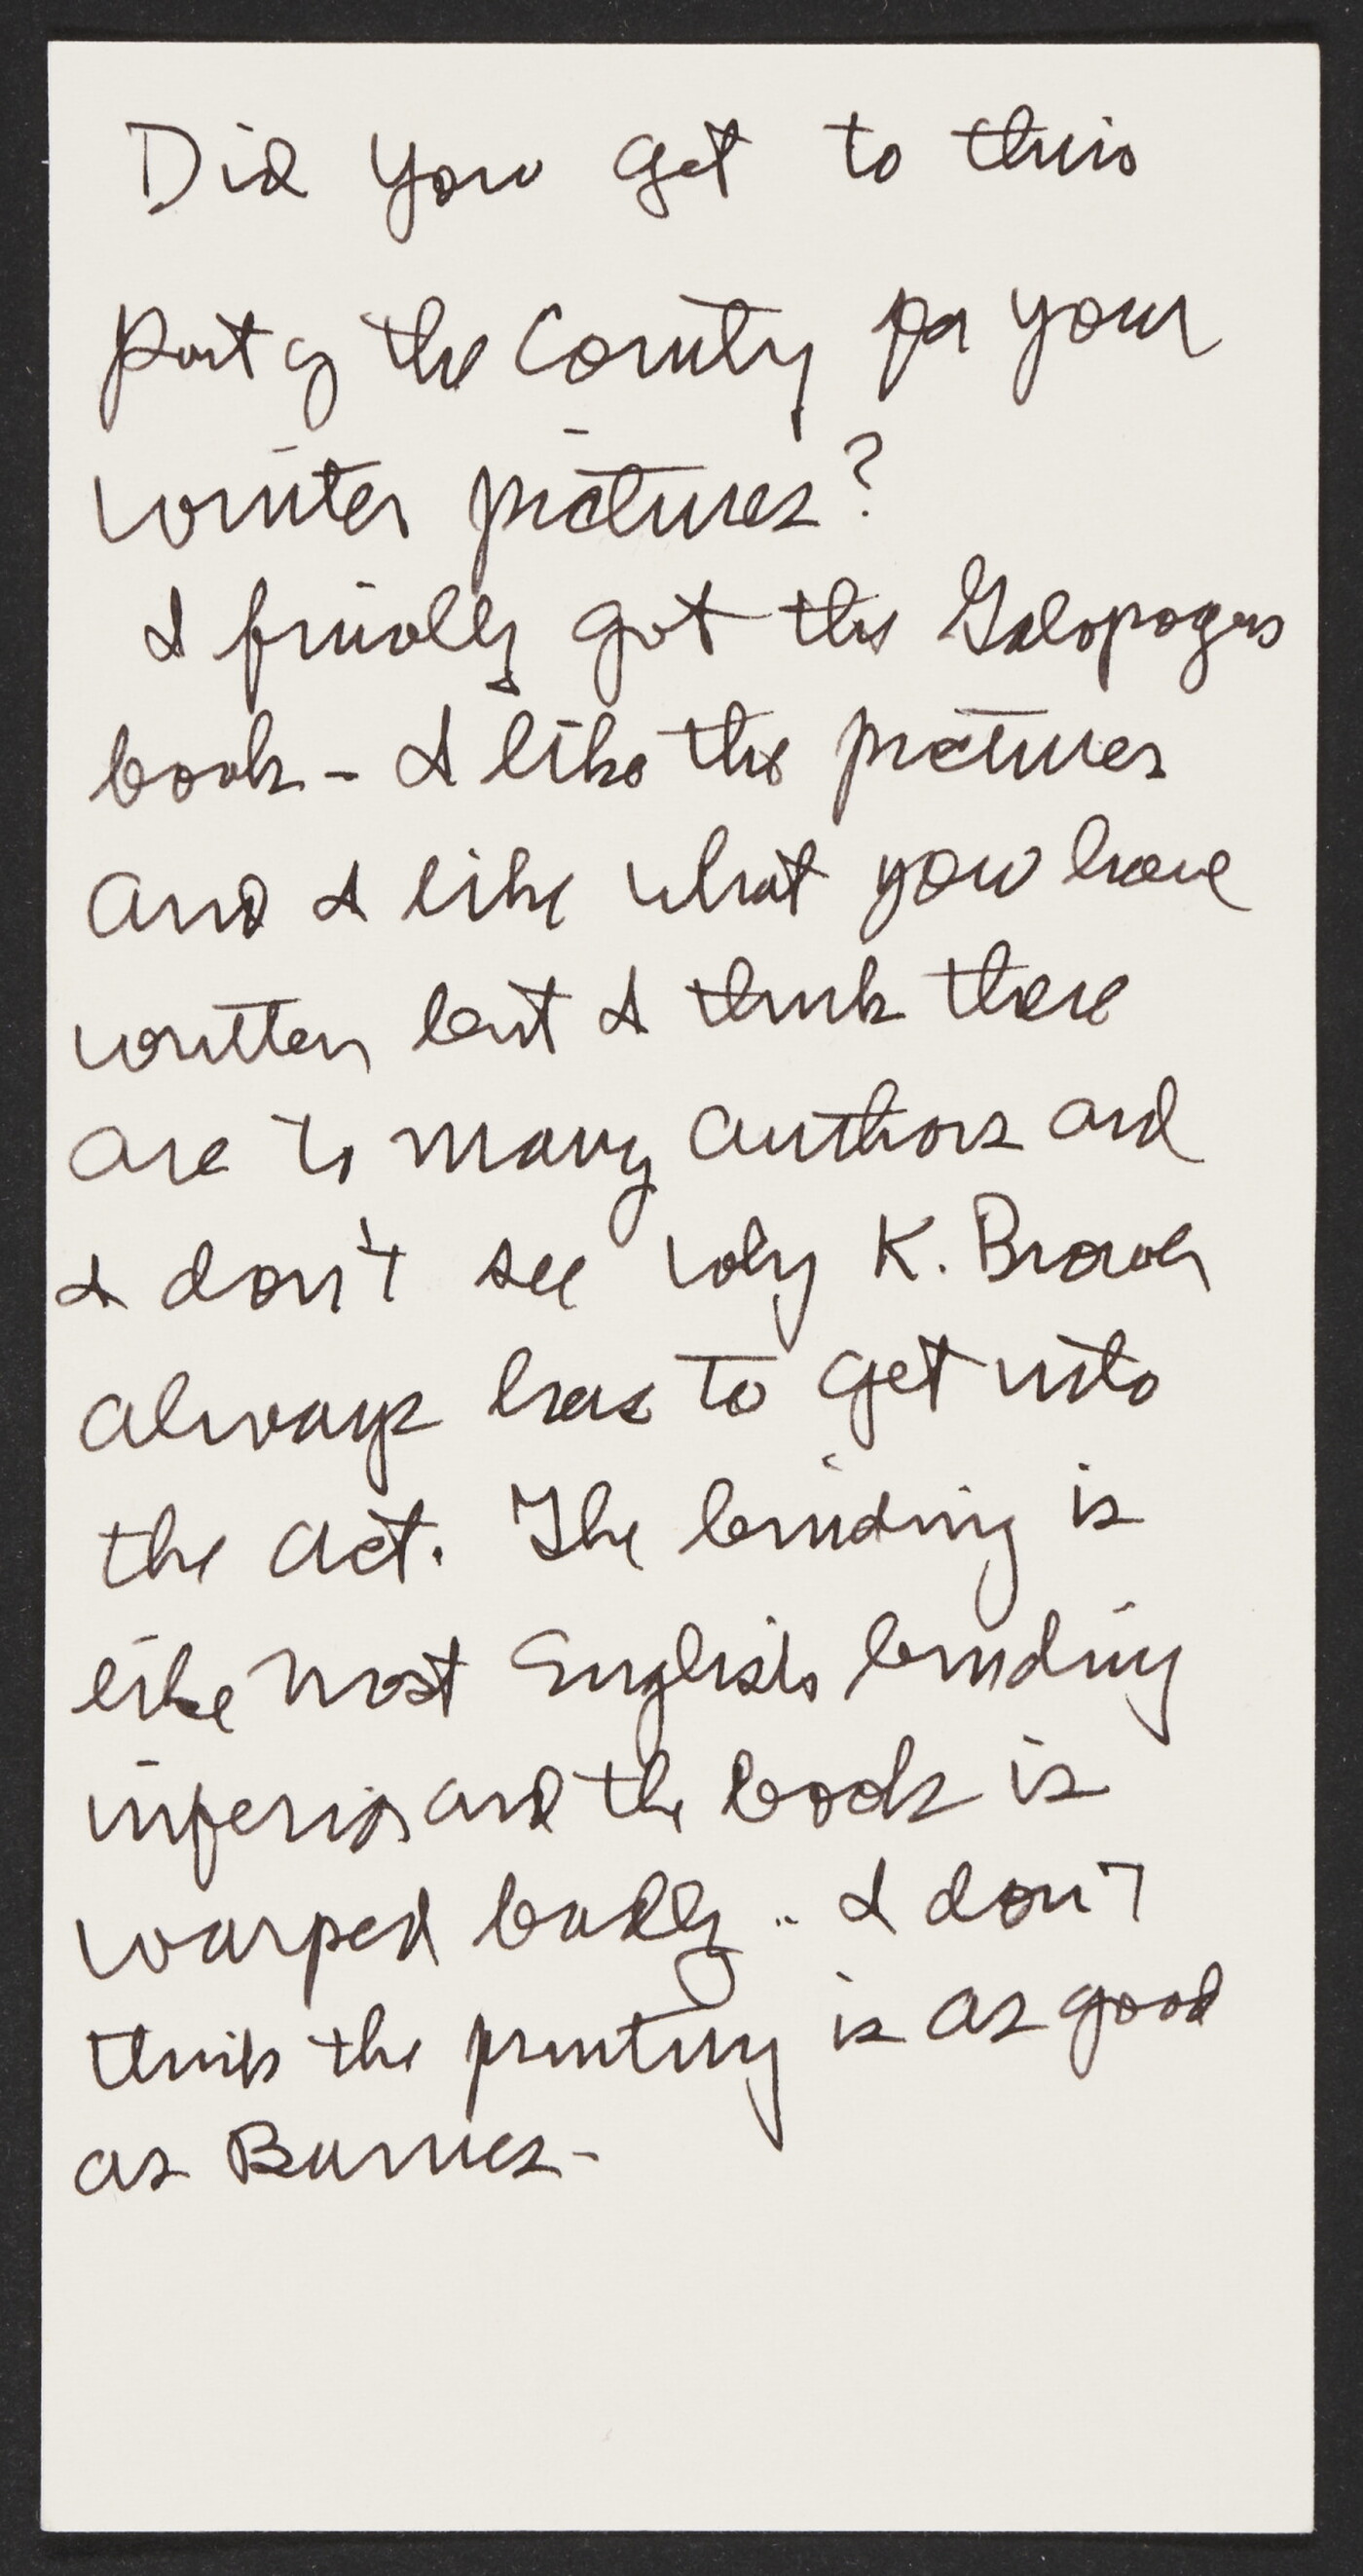 Did you get to this
part of the County for your
winter pictures?
I finally got the Galopogus
book - I like the pictures
and I like what you have
written but I think there
are to many authors and
I don't see why K. Brower
always has to get into
the act. The binding is
like most English binding
inferior and the book is
warped badly .. I don't
think the printing is as good
as Barnes -